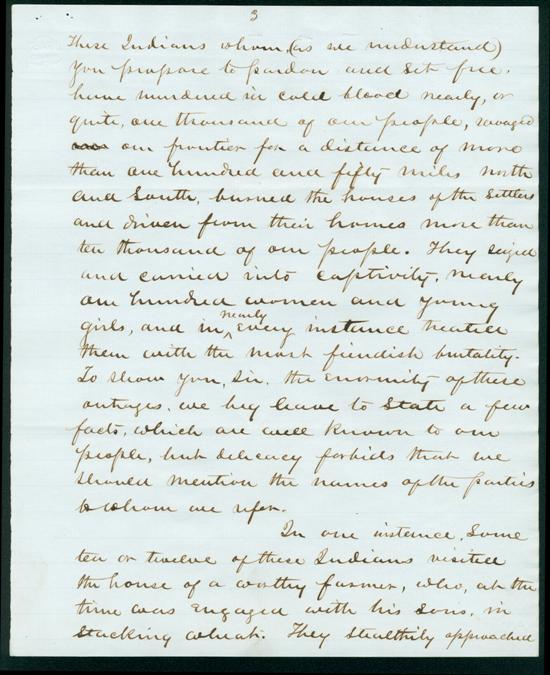 3
These Indians whom, (as we understand)
you propose to pardon and set free,
have murdered in cold blood nearly, or
quite, one thousand of our people, ravaged
our frontier for a distance of more
than one hundred and fifty miles north
and South, burned the houses of the Settlers
and driven from their homes more than
ten thousand of our people. They seized
and carried into captivity, nearly
one hundred women and young
girls, and in nearly every instance treated
them with the most fiendish brutality.
To show you, Sir, the enormity of these
outrages, we beg leave to State a few
facts, which are well known to our
people, but delicacy forbids that we
should mention the names of the parties
to whom we refer.
In one instance, Some
ten or twelve of these Indians visited
the house of a worthy farmer, who, at the
time was engaged with his sons, in
Stacking wheat. They stealthily approached